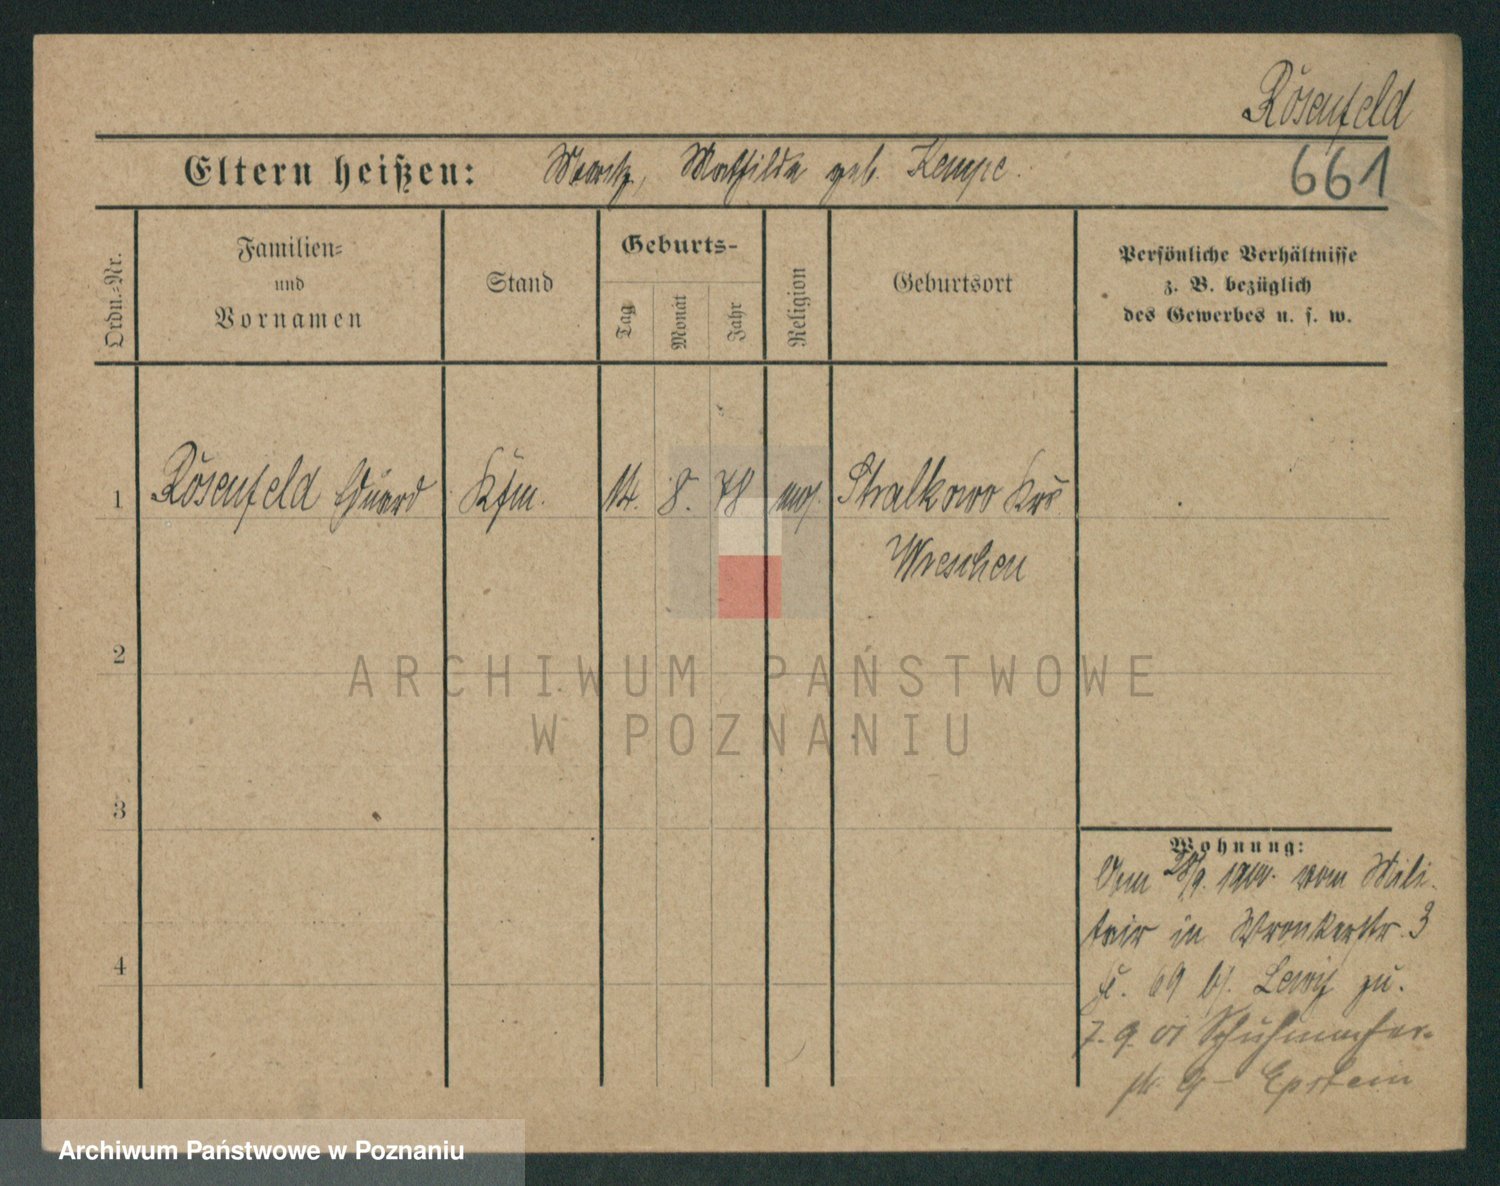 Rosenfeld
Eltern heißen: Moritz, Mathilde geb. Kempe.
661
Ordn.-Nr.
Familien-
und
Vornamen
Stand
Geburts-
Tag
Monat
Jahr
Religion
Geburtsort
Persönliche Verhältnisse
z. B. bezüglich
des Gewerbes u. s. w.
1 Rosenfeld Eduard Kfm. 14. 8. 78 mos. Stralkowo Krs
Wreschen
2
ARCHIWUM PAŃSTWOWE
W POZNANIU
3
Wohnung:
Vom 28/9. 1900. vom Mili-
tair in Wronkerstr. 3
69 bs. Lewy zu.
7. 9. 01 Schuhmacher-
str. 9 – Epstein
4
Archiwum Państwowe w Poznaniu